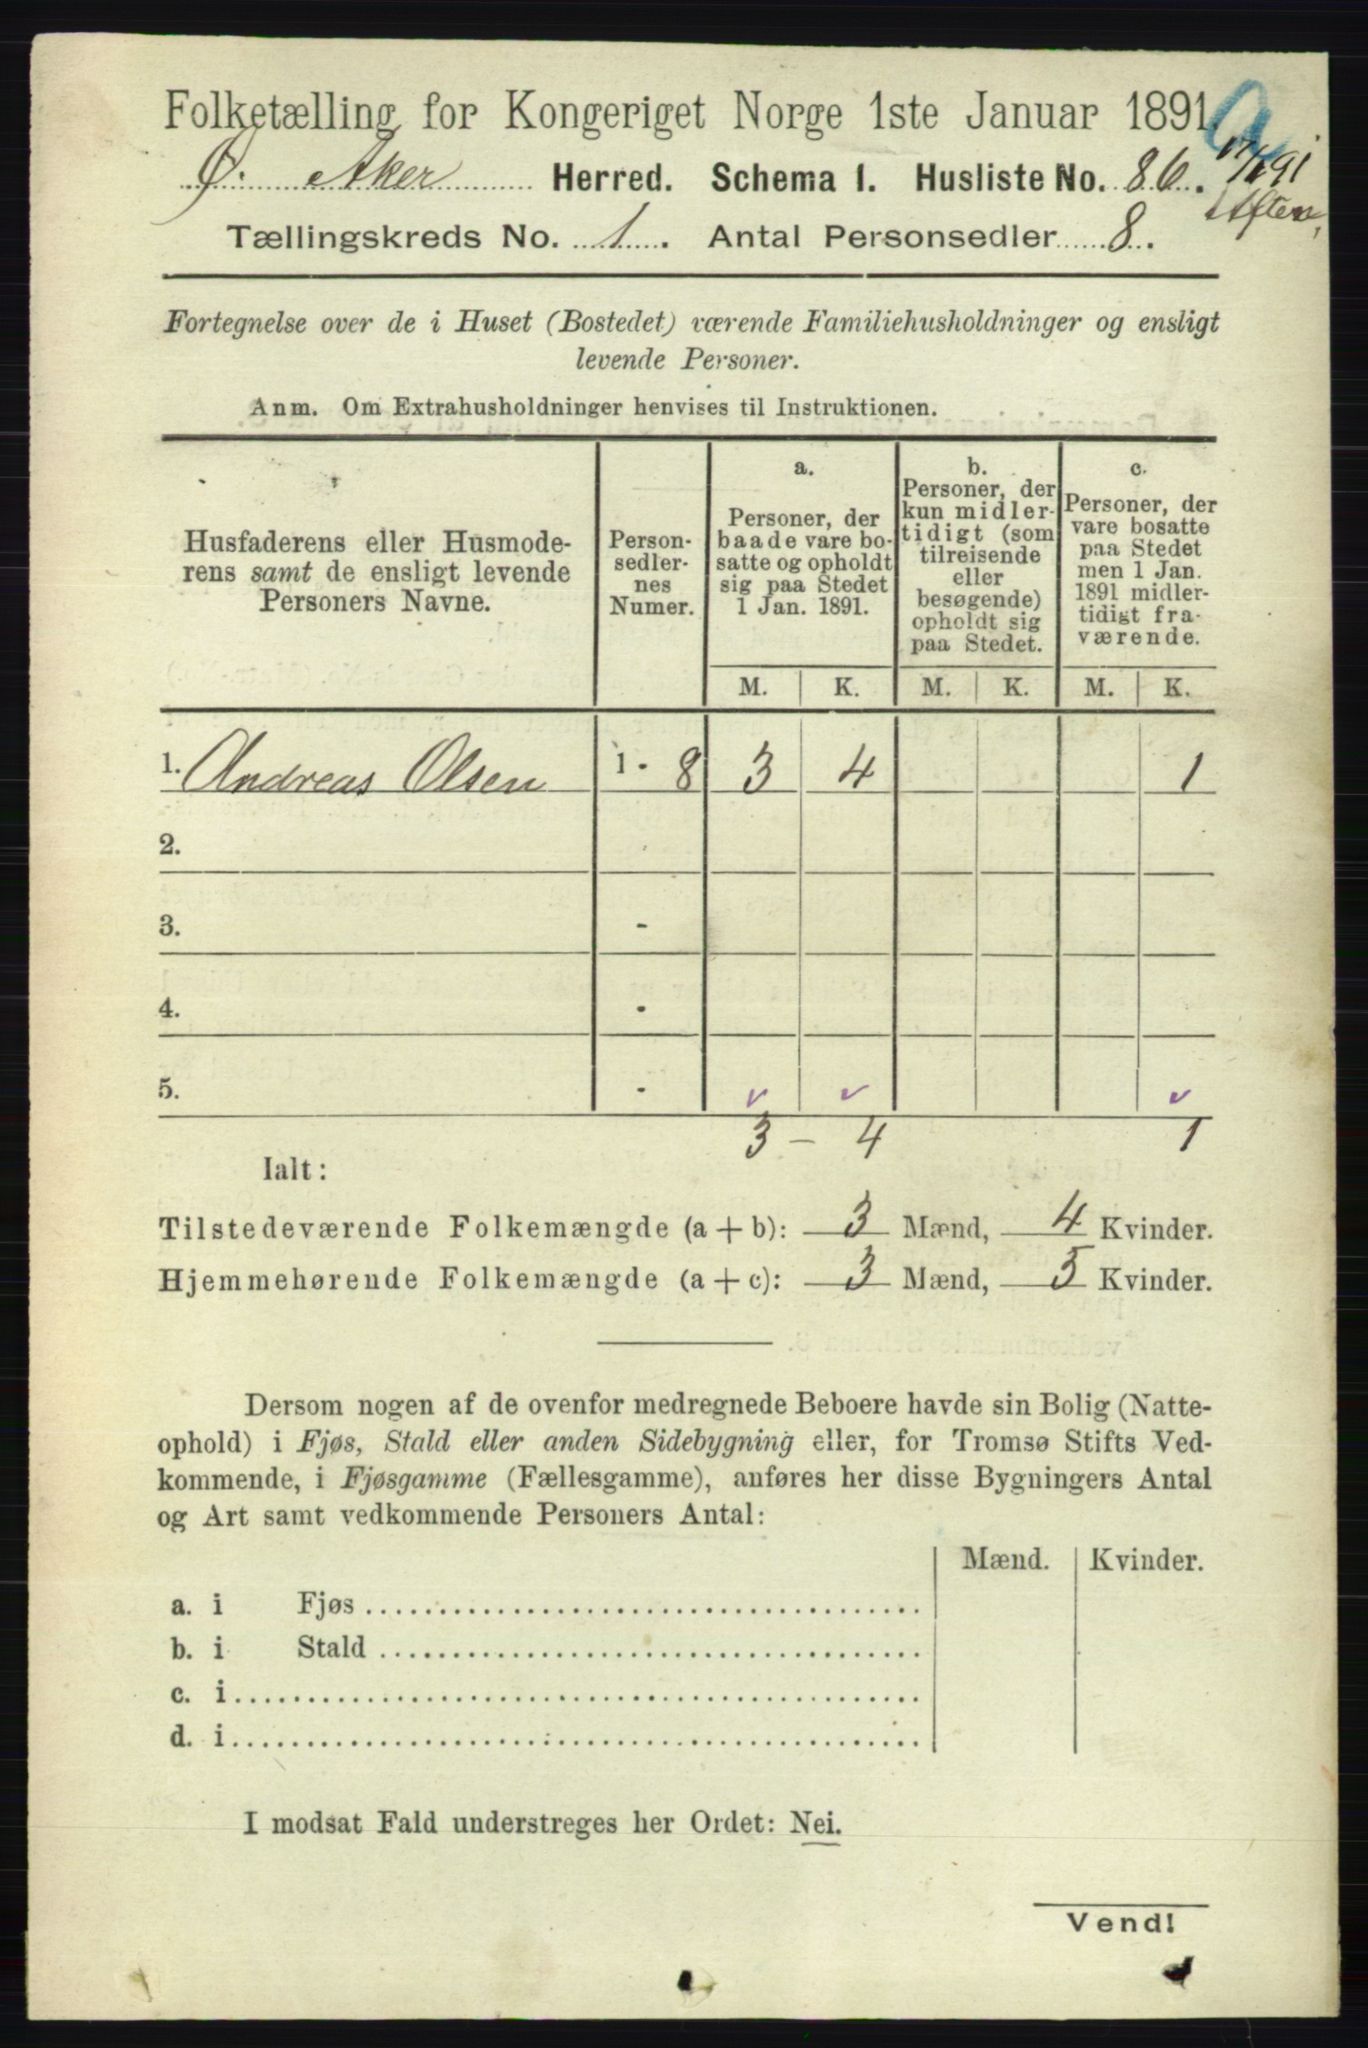 Folketælling for Kongeriget Norge 1ste Januar 1891.
Ø. Aker Herred. Schema 1. Husliste No. 86.
Aften
Tællingskreds No. 1. Antal Personsedler 8.
Fortegnelse over de i Huset (Bostedet) værende Familiehusholdninger og ensligt
levende Personer.
Anm. Om Extrahusholdninger henvises til Instruktionen.
Husfaderens eller Husmode-
rens samt de ensligt levende
Personers Navne.
Person-
sedler-
nes
Numer.
a.
Personer, der
baade vare bo-
satte og opholdt
sig paa Stedet
1 Jan. 1891.
b.
Personer, der
kun midler-
tidigt (som
tilreisende
eller
besøgende)
opholdt sig
paa Stedet.
c.
Personer, der
vare bosatte
paa Stedet
men 1 Jan.
1891 midler-
tidigt fra-
værende.
M. K. M. K. M. K.
1. Andreas Olsen 1 - 8 3 4 1
2.
3. -
4. -
5. -
3 - 4 1
Ialt:
Tilstedeværende Folkemængde (a + b): 3 Mænd, 4 Kvinder.
Hjemmehørende Folkemængde (a + c): 3 Mænd, 5 Kvinder.
Dersom nogen af de ovenfor medregnede Beboere havde sin Bolig (Natte-
ophold) i Fjøs, Stald eller anden Sidebygning eller, for Tromsø Stifts Ved-
kommende, i Fjøsgamme (Fællesgamme), anføres her disse Bygningers Antal
og Art samt vedkommende Personers Antal:
Mænd. Kvinder.
a. i Fjøs
b. i Stald
c. i
d. i
I modsat Fald understreges her Ordet: Nei.
Vend!